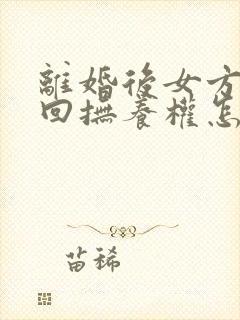 離婚後女方
回撫養權怎
苗稀